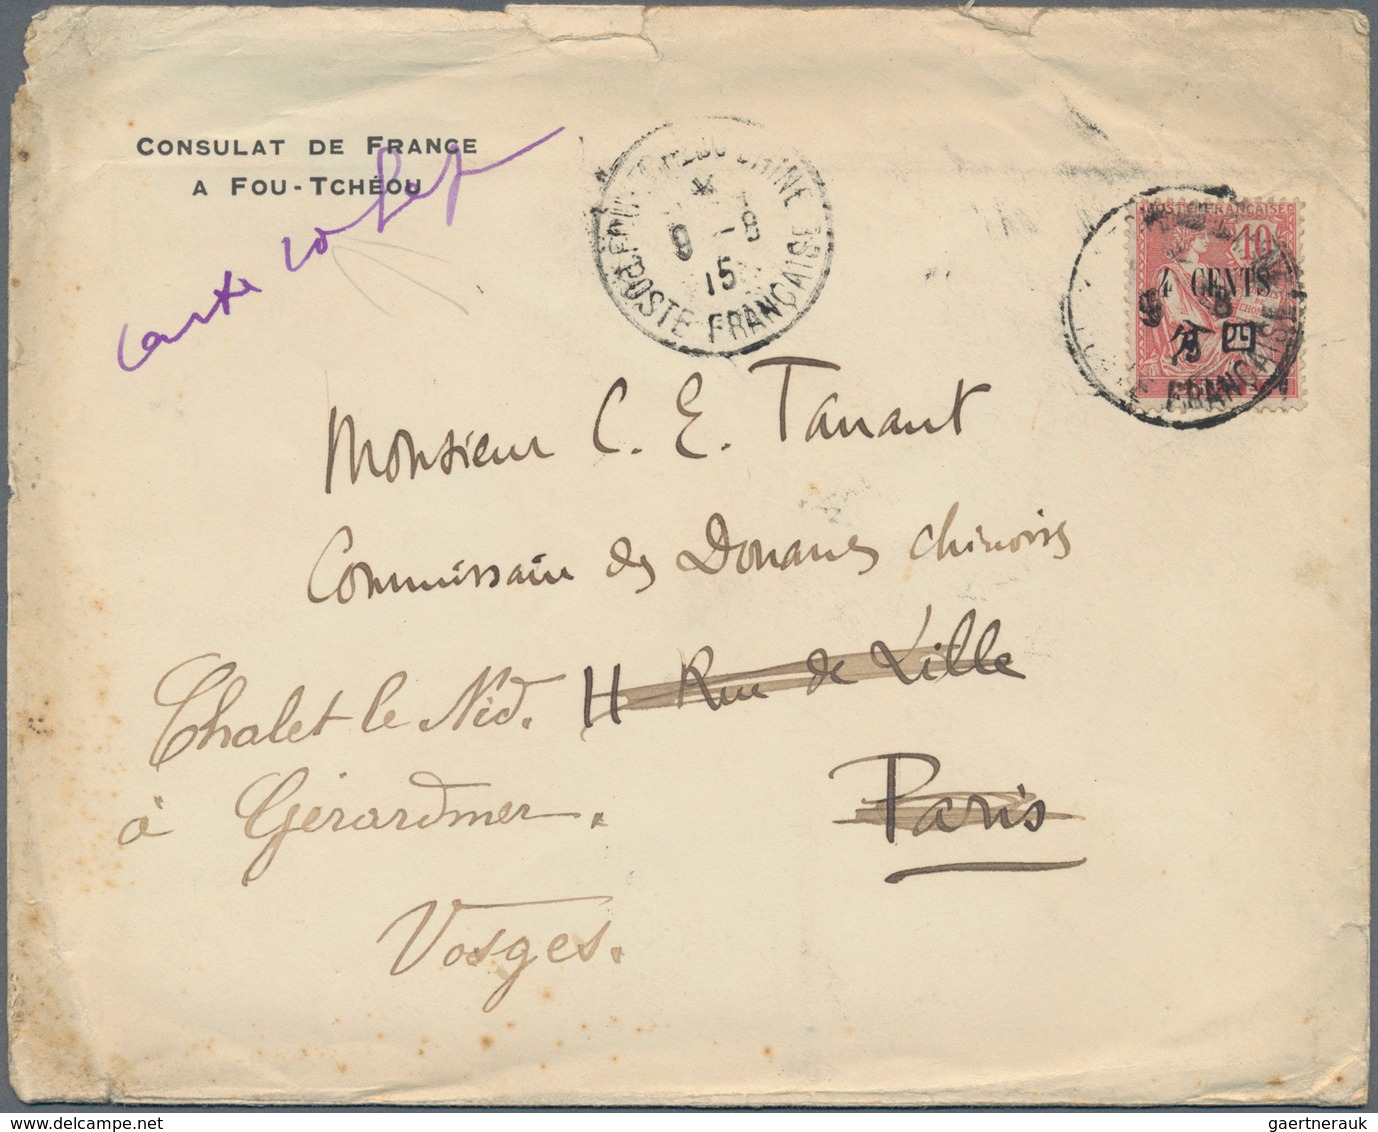 CONSULAT DE FRANCE
A FOU-TCHÉOU
Carte
CHINE
9 -8
15
POSTE FRANÇAISE
POSTE FRANÇAISE
10
4 CENTS
分四
9 8
15
POSTE FRANÇAISE
Monsieur C. E. Tanant
Commissaire des Douanes chinoises
11 Rue de Lille
Paris
Chalet le Nid.
à Gérardmer.
Vosges.
gaertnerauk